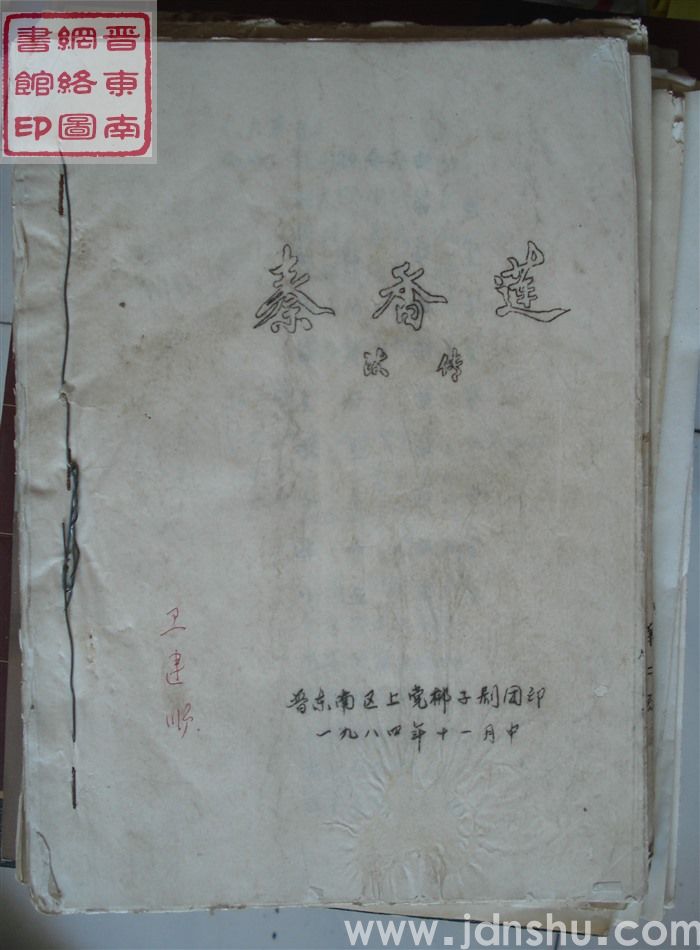 晋東南
網絡圖
書館印
秦香莲
法传
卫建顺
晋东南区上党梆子剧团印
一九八四年十一月中
www.jdnshu.com